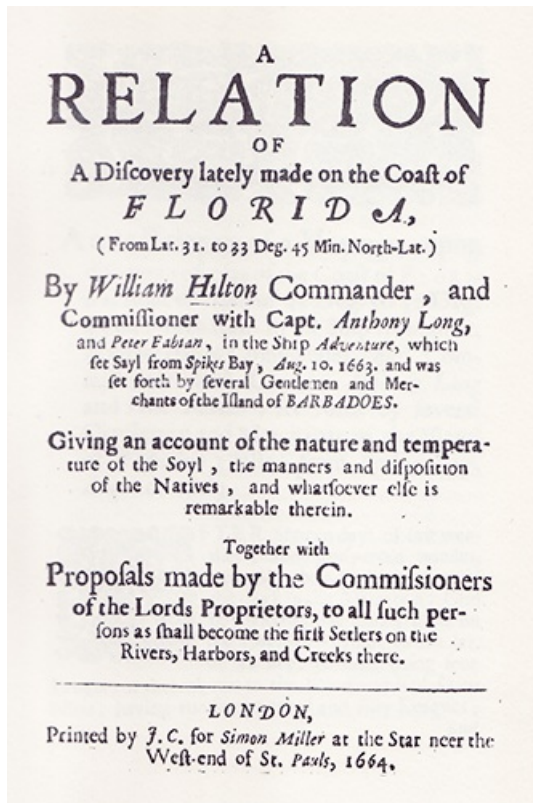 A
RELATION
OF
A Diſcovery lately made on the Coaſt of
FLORIDA,
(From Lat. 31. to 33 Deg. 45 Min. North-Lat.)
By William Hilton Commander, and
Commiſſioner with Capt. Anthony Long,
and Peter Fabian, in the Ship Adventure, which
ſet Sayl from Spikes Bay, Aug. 10. 1663. and was
ſet forth by ſeveral Gentlemen and Mer-
chants of the Iſland of BARBADOES.
Giving an account of the nature and tempera-
ture of the Soyl, the manners and diſpoſition
of the Natives, and whatſoever elſe is
remarkable therein.
Together with
Propoſals made by the Commiſſioners
of the Lords Proprietors, to all ſuch per-
ſons as ſhall become the firſt Setlers on the
Rivers, Harbors, and Creeks there.
LONDON,
Printed by J.C. for Simon Miller at the Star neer the
Weſt-end of St. Pauls, 1664.